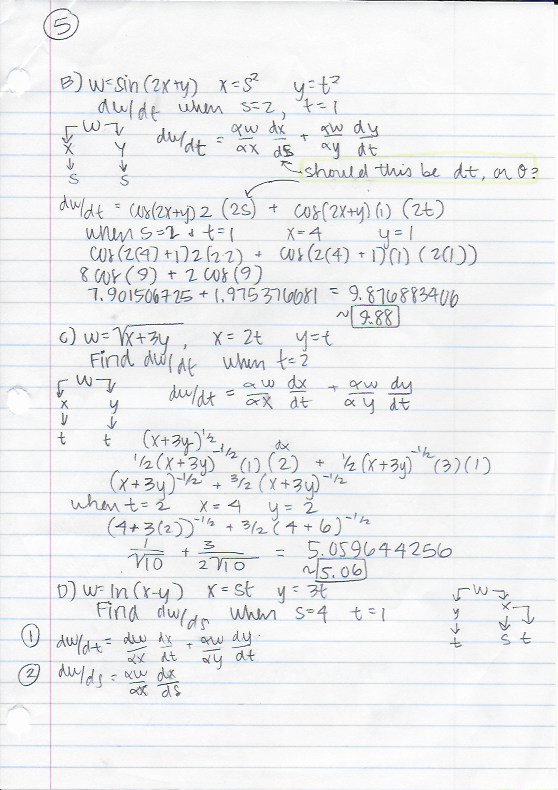 5
B) w=sin(2x+y) x=s² y=t²
dw/dt when s=2, t=1
w
x y dw/dt = αw/αx dx/ds + αw/αy dy/dt
s s should this be dt, or 0?
dw/dt = cos(2x+y) 2 (2s) + cos(2x+y)(1) (2t)
when s=2 & t=1 x=4 y=1
cos(2(4)+1)2(2·2) + cos(2(4)+1)(1) (2(1))
8cos(9) + 2cos(9)
7.901506725 + 1.975376681 = 9.876883406
~ 9.88
C) w=√x+3y, x=2t y=t
Find dw/dt when t=2
w
x y dw/dt = αw/αx dx/dt + αw/αy dy/dt
t t (x+3y)^1/2
dx
1/2(x+3y)^-1/2 (1) (2) + 1/2(x+3y)^-1/2 (3)(1)
(x+3y)^-1/2 + 3/2(x+3y)^-1/2
when t=2 x=4 y=2
(4+3(2))^-1/2 + 3/2(4+6)^-1/2
1/√10 + 3/2√10 = 5.059644256
~ 5.06
D) w=ln(x-y) x=st y=3t
Find dw/ds when s=4 t=1
w
y x
t s t
① dw/dt = dw/αx dx/dt + αw/αy dy/dt
② dw/ds = αw/αx dx/ds